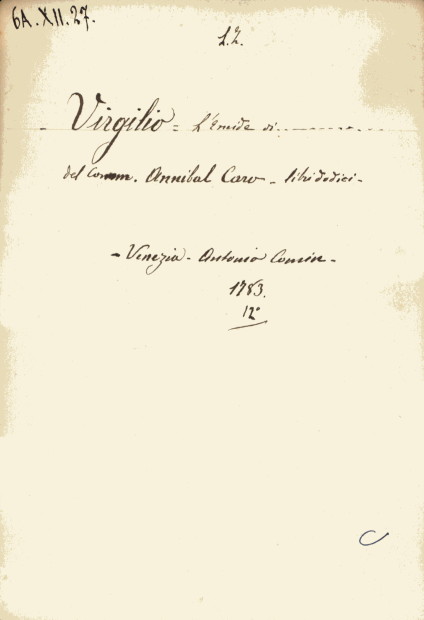 6A.XII.27.
L.2.
Virgilio = L'Eneide di
del Comm. Annibal Caro - libri dodici -
- Venezia - Antonio Comin -
1783.
12°
C